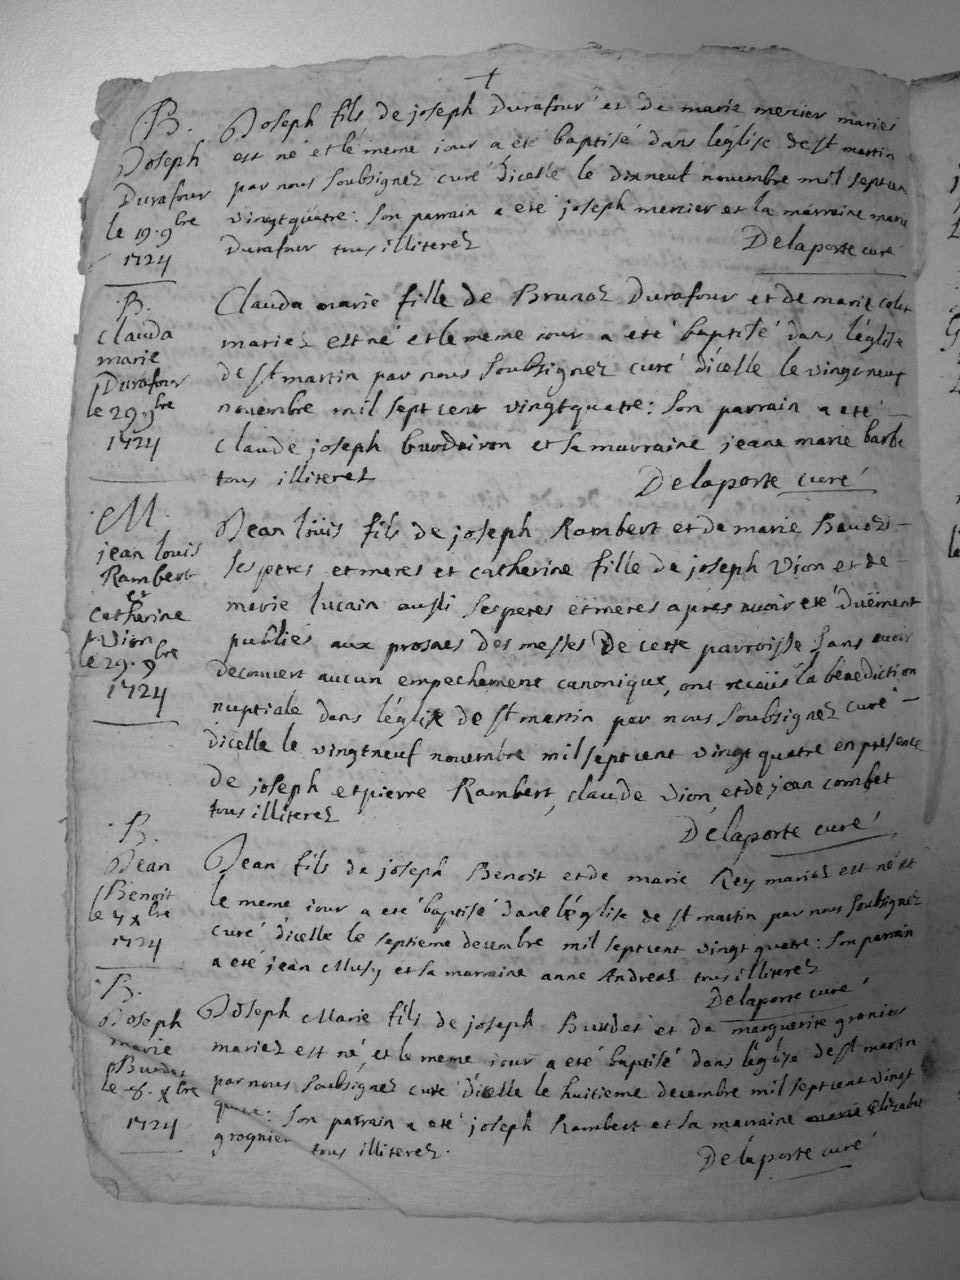 +
B.
Joseph
Durafour
le 19. 9bre
1724
Joseph fils de joseph Durafour et de marie mercier mariés
est né et le meme iour a eté baptisé dans léglise de st martin
par nous soubsignez curé dicelle le dixneuf novembre mil septcen
vingtquatre: son parrain a eté joseph mercier et la marraine marie
Durafour tous illiterez
Delaporte curé
B.
Clauda
marie
Durafour
le 29. 9bre
1724
Clauda marie fille de Brunoz Durafour et de marie
mariez est né et le meme iour a eté baptisé dans léglise
de st martin par nous soubsignez curé dicelle le vingtneuf
novembre mil sept cent vingtquatre: son parrain a eté
claude joseph et sa marraine jeane marie barbe
tous illiterez
Delaporte curé
M.
jean louis
Rambert
et
catherine
Vion
le 29. 9bre
1724
Jean loüis fils de joseph Rambert et de marie
ses peres et meres et catherine fille de joseph Vion et de
marie lucain aussi ses peres et meres apres avoir eté düement
publiés aux prosnes des messes De cette parroisse sans avoir
decouvert aucun empechement canonique, ont recüs la bénediction
nuptiale dans léglise de st martin par nous soubsignez curé
dicelle le vingtneuf novembre mil septcent vingt quatre en présence
de joseph et pierre Rambert, claude Vion et de jean combet
tous illiterez
Delaporte curé
B.
Jean
Benoit
le 7 xbre
1724
Jean fils de joseph Benoit et de marie Rey mariez est né et
le meme iour a eté baptisé dans léglise de st martin par nous soubsignez
curé dicelle le septieme decembre mil septcent vingt quatre: son parrain
a eté jean Musy et sa marraine anne Andreas tous illiterez
Delaporte curé
B.
Joseph
marie
Burdet
le 8. xbre
1724
Joseph Marie fils de joseph Burdet et de marguerite grenier
mariez est né et le meme iour a eté baptisé dans léglise de st martin
par nous soubsignez curé dicelle le huitieme decembre mil septcent vingt
quatre: son parrain a eté joseph Rambert et sa marraine marie Elizabet
grognier tous illiterez.
Delaporte curé